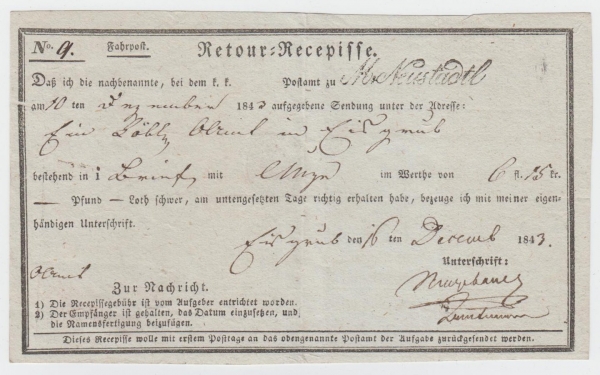 No. 9. Fahrpost. Retour=Recepisse.
Daß ich die nachbenannte, bei dem k. k. Postamt zu M. Neustadtl
am 10 ten Dezember 1843 aufgegebene Sendung unter der Adresse:
Ein Löbl. Oberamt in Eisgrub
bestehend in 1 Brief mit im Werthe von 6 fl. 15 kr.
— Pfund — Loth schwer, am untengesetzten Tage richtig erhalten habe, bezeuge ich mit meiner eigen=
händigen Unterschrift.
Eisgrub den 16 ten Decemb 1843.
Unterschrift:
Zur Nachricht.
1) Die Recepissegebühr ist vom Aufgeber entrichtet worden.
2) Der Empfänger ist gehalten, das Datum einzusetzen, und
die Namensfertigung beizufügen.
Dieses Recepisse wolle mit erstem Posttage an das obengenannte Postamt der Aufgabe zurückgesendet werden.